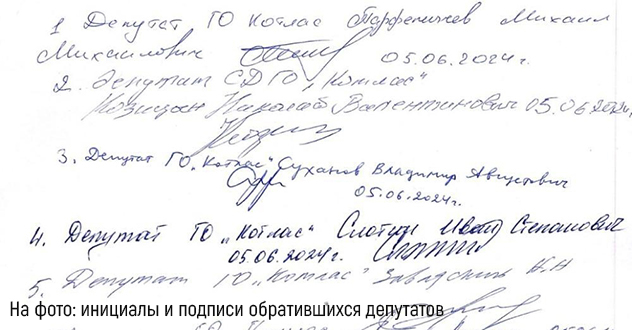 1 Депутат ГО Котлас Парфеничев Михаил
Михаилович 05.06.2024г.
2. Депутат СД ГО „Котлас"
Козицын Николай Валентинович 05.06.2024г,
3. Депутат ГО „Котлас" Суханов Владимир Августович
05.06.2024г.
4. Депутат ГО „Котлас" Слотин Иван Степанович
05.06.2024г.
5. Депутат ГО „Котлас"
На фото: инициалы и подписи обратившихся депутатов